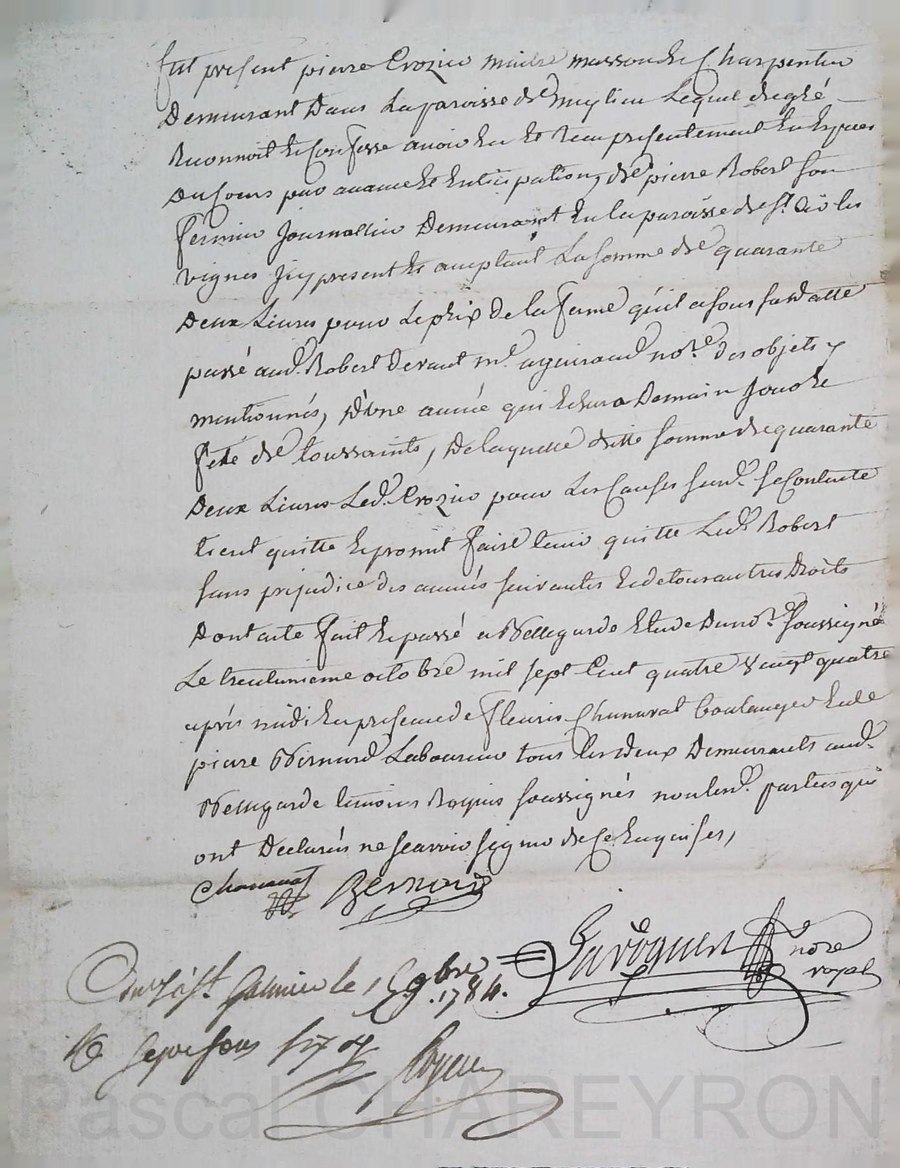 fut présent pierre Crozier maitre masson & Charpentier
Demeurant Dans La paroisse de Meylieu Lequel de gré
Reconnoit & Confesse avoir eu & Receu présentement En Espèces
Du Cours par avance & Enticipation, de pierre Robert son
fermier Journallier Demeurant En la paroisse de St. Cir les
vignes Icy présent & aceptant La somme de quarante
Deux Livres pour Le prix de la ferme qu'il a sous sa datte
passé aud. Robert Devant me. aguiraud nore. des objets y
mentionnés, D'une année qui Echera Demain Jour &
fête de toussaints, De laquelle ditte somme de quarante
Deux Livres Led. Crozier pour Les Causes susd. se Contente
tient quitte & promet faire tenir quitte Led. Robert
sans préjudice des années suivantes & de tous autres Droits
Dont acte fait & passé a Bellegarde Etude Du nore. soussigné
Le trente unieme octobre mil sept Cent quatre vingt quatre
après midi En présence de fleuris Chanavat boulanger & de
pierre Bernard Laboureur tous les deux Demeurants aud.
Bellegarde temoins Requis soussignés non lesd. parties qui
ont Déclarés ne scavoir signer de Ce Enquises,
Chanavat Bernard
nore
royal
Con. à St. Galmier le 9bre 1784.
sous